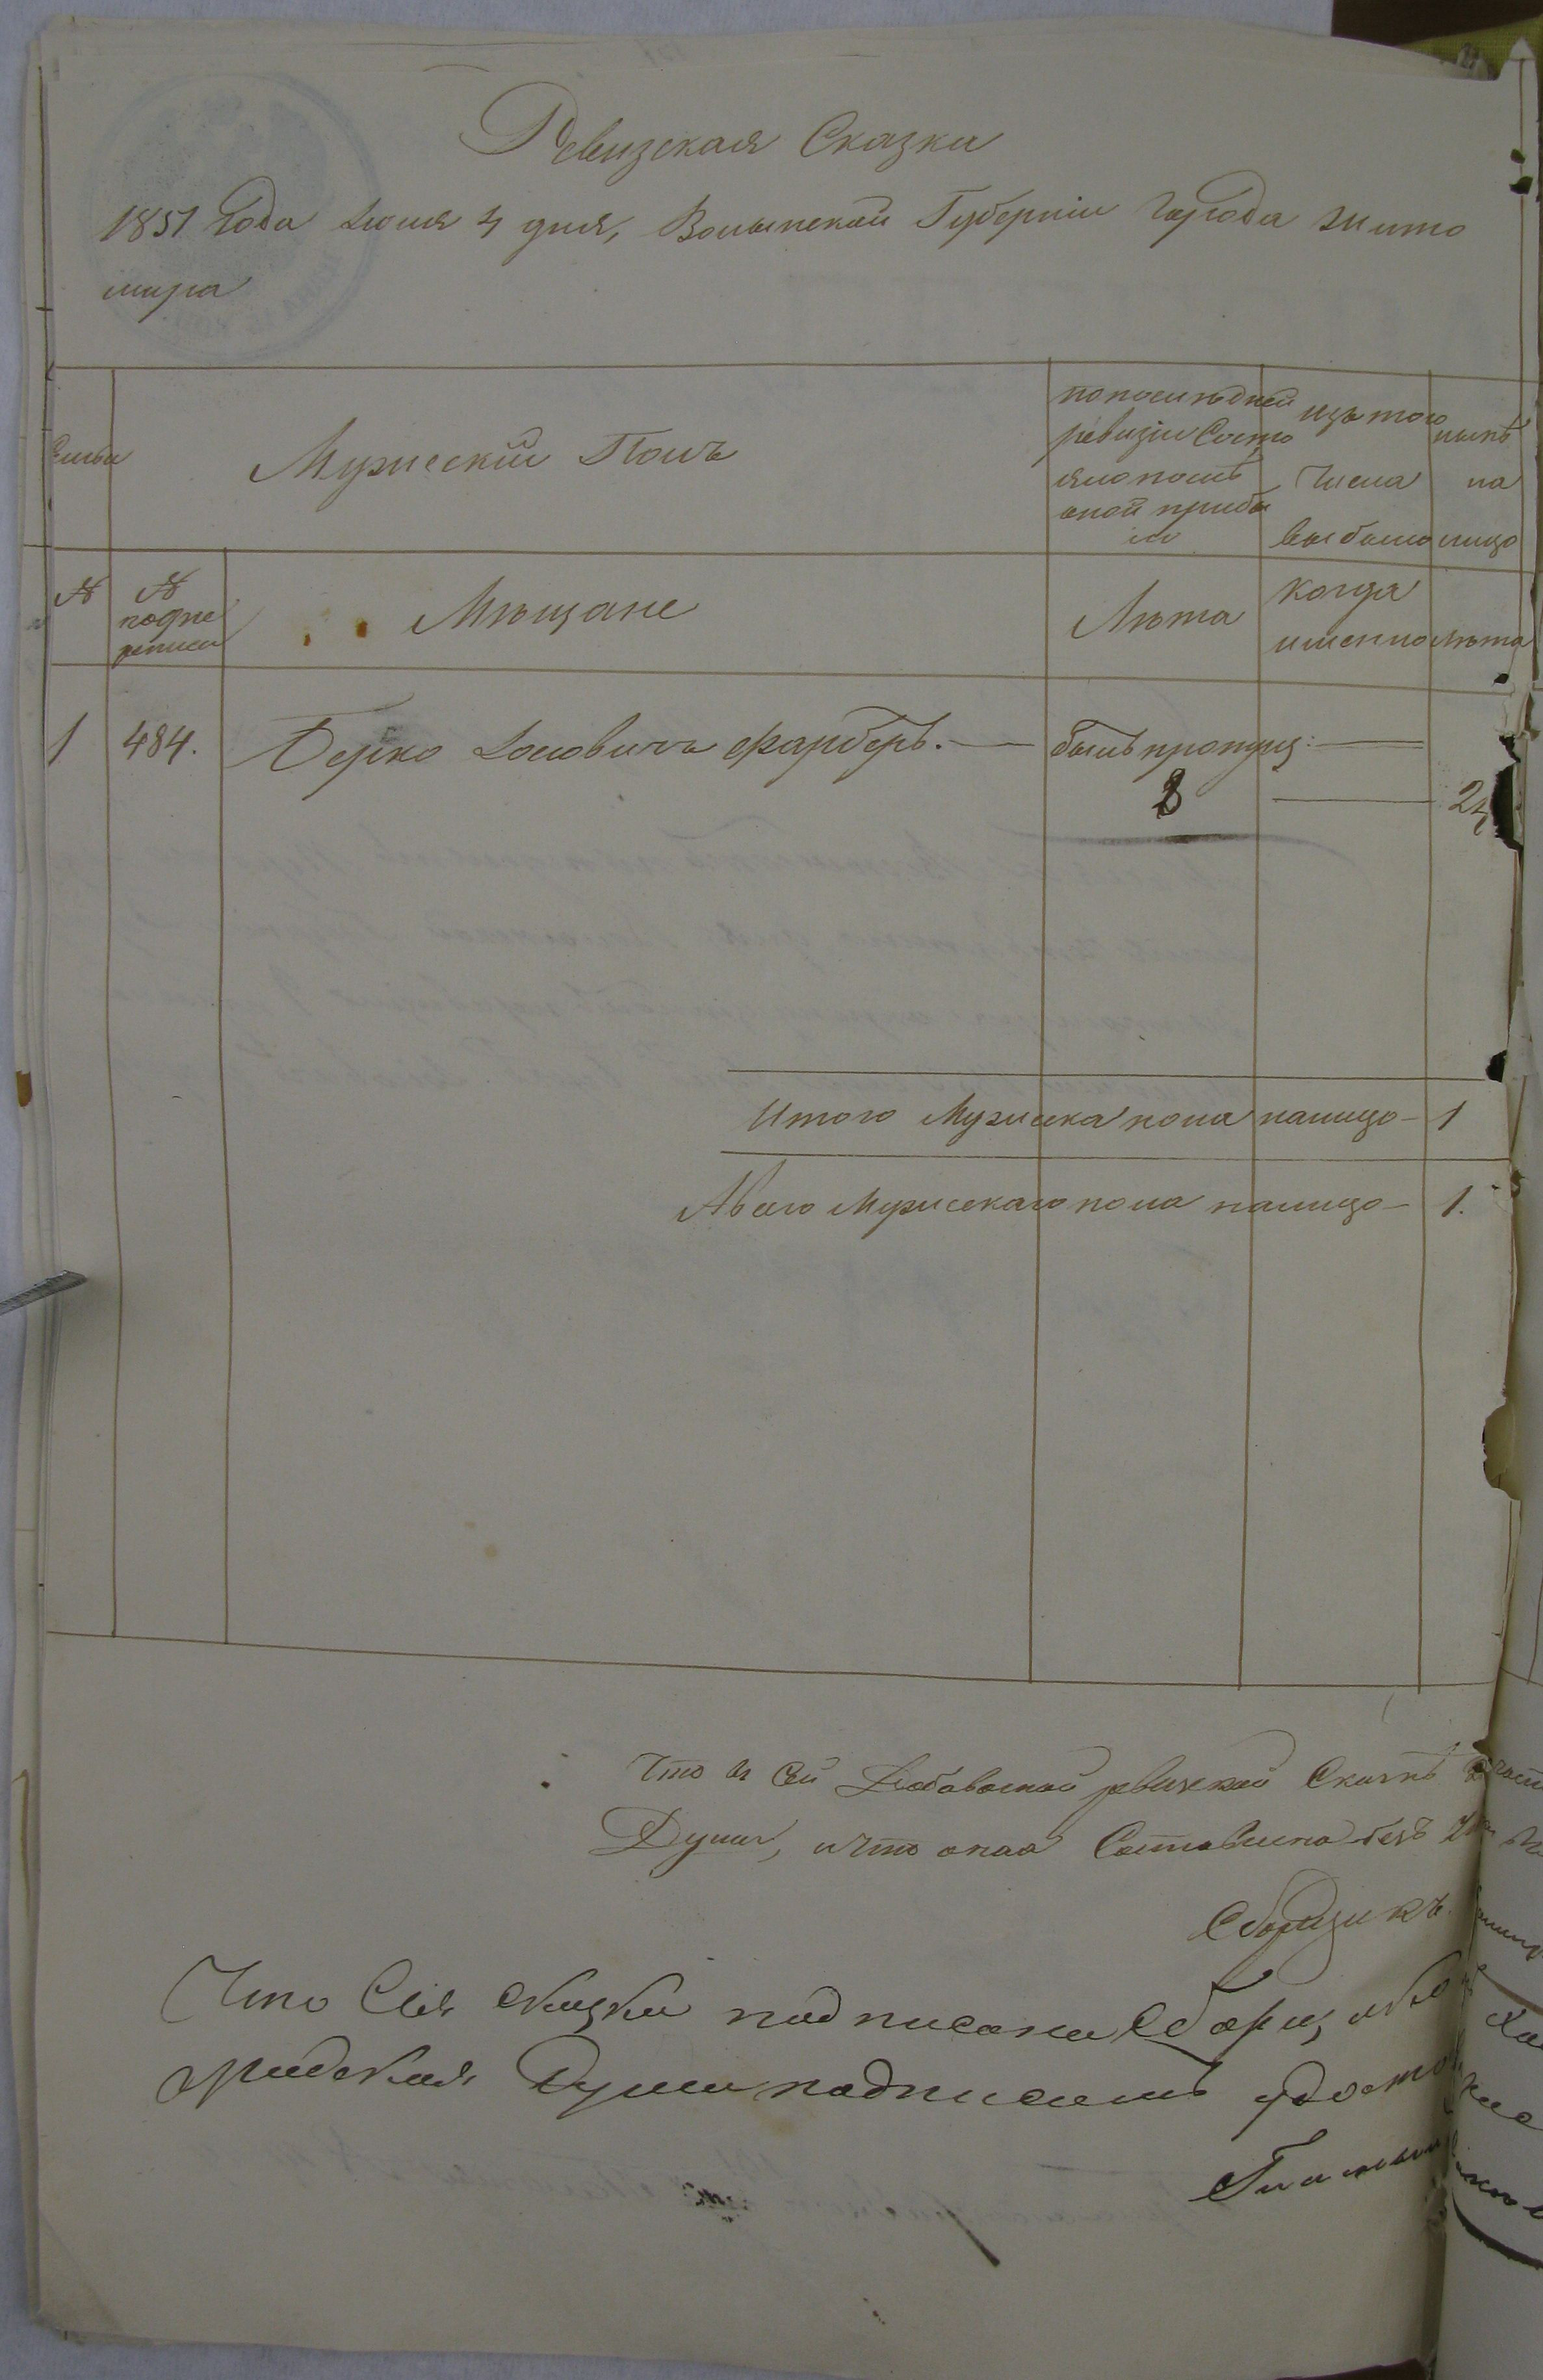 Ревизская Сказка
1851 Года Июня 4 дня, Волынской Губерніи Города Жито
мира
Семьи
Мужескій Полъ
по последней
ревизіи Состо
яло после
оной прибы
ло
изъ того
Числа
выбыло
ныне
на
лицо
№
№
подпе
реписи
Мѣщане
Лѣта
Когда
именно
Лѣта
1
484.
Берко Іосовичъ Фарберъ.
былъ пропущ:
8
24
Итого Мужеска пола налицо - 1
А всего Мужескаго пола налицо - 1.
Что въ Сей Добавочной ревизской Сказкѣ
Души, и что оная Составлена безъ
Сборщикъ
Что Сія сказка подписана Сборщико
градская Дума подписемъ удосто